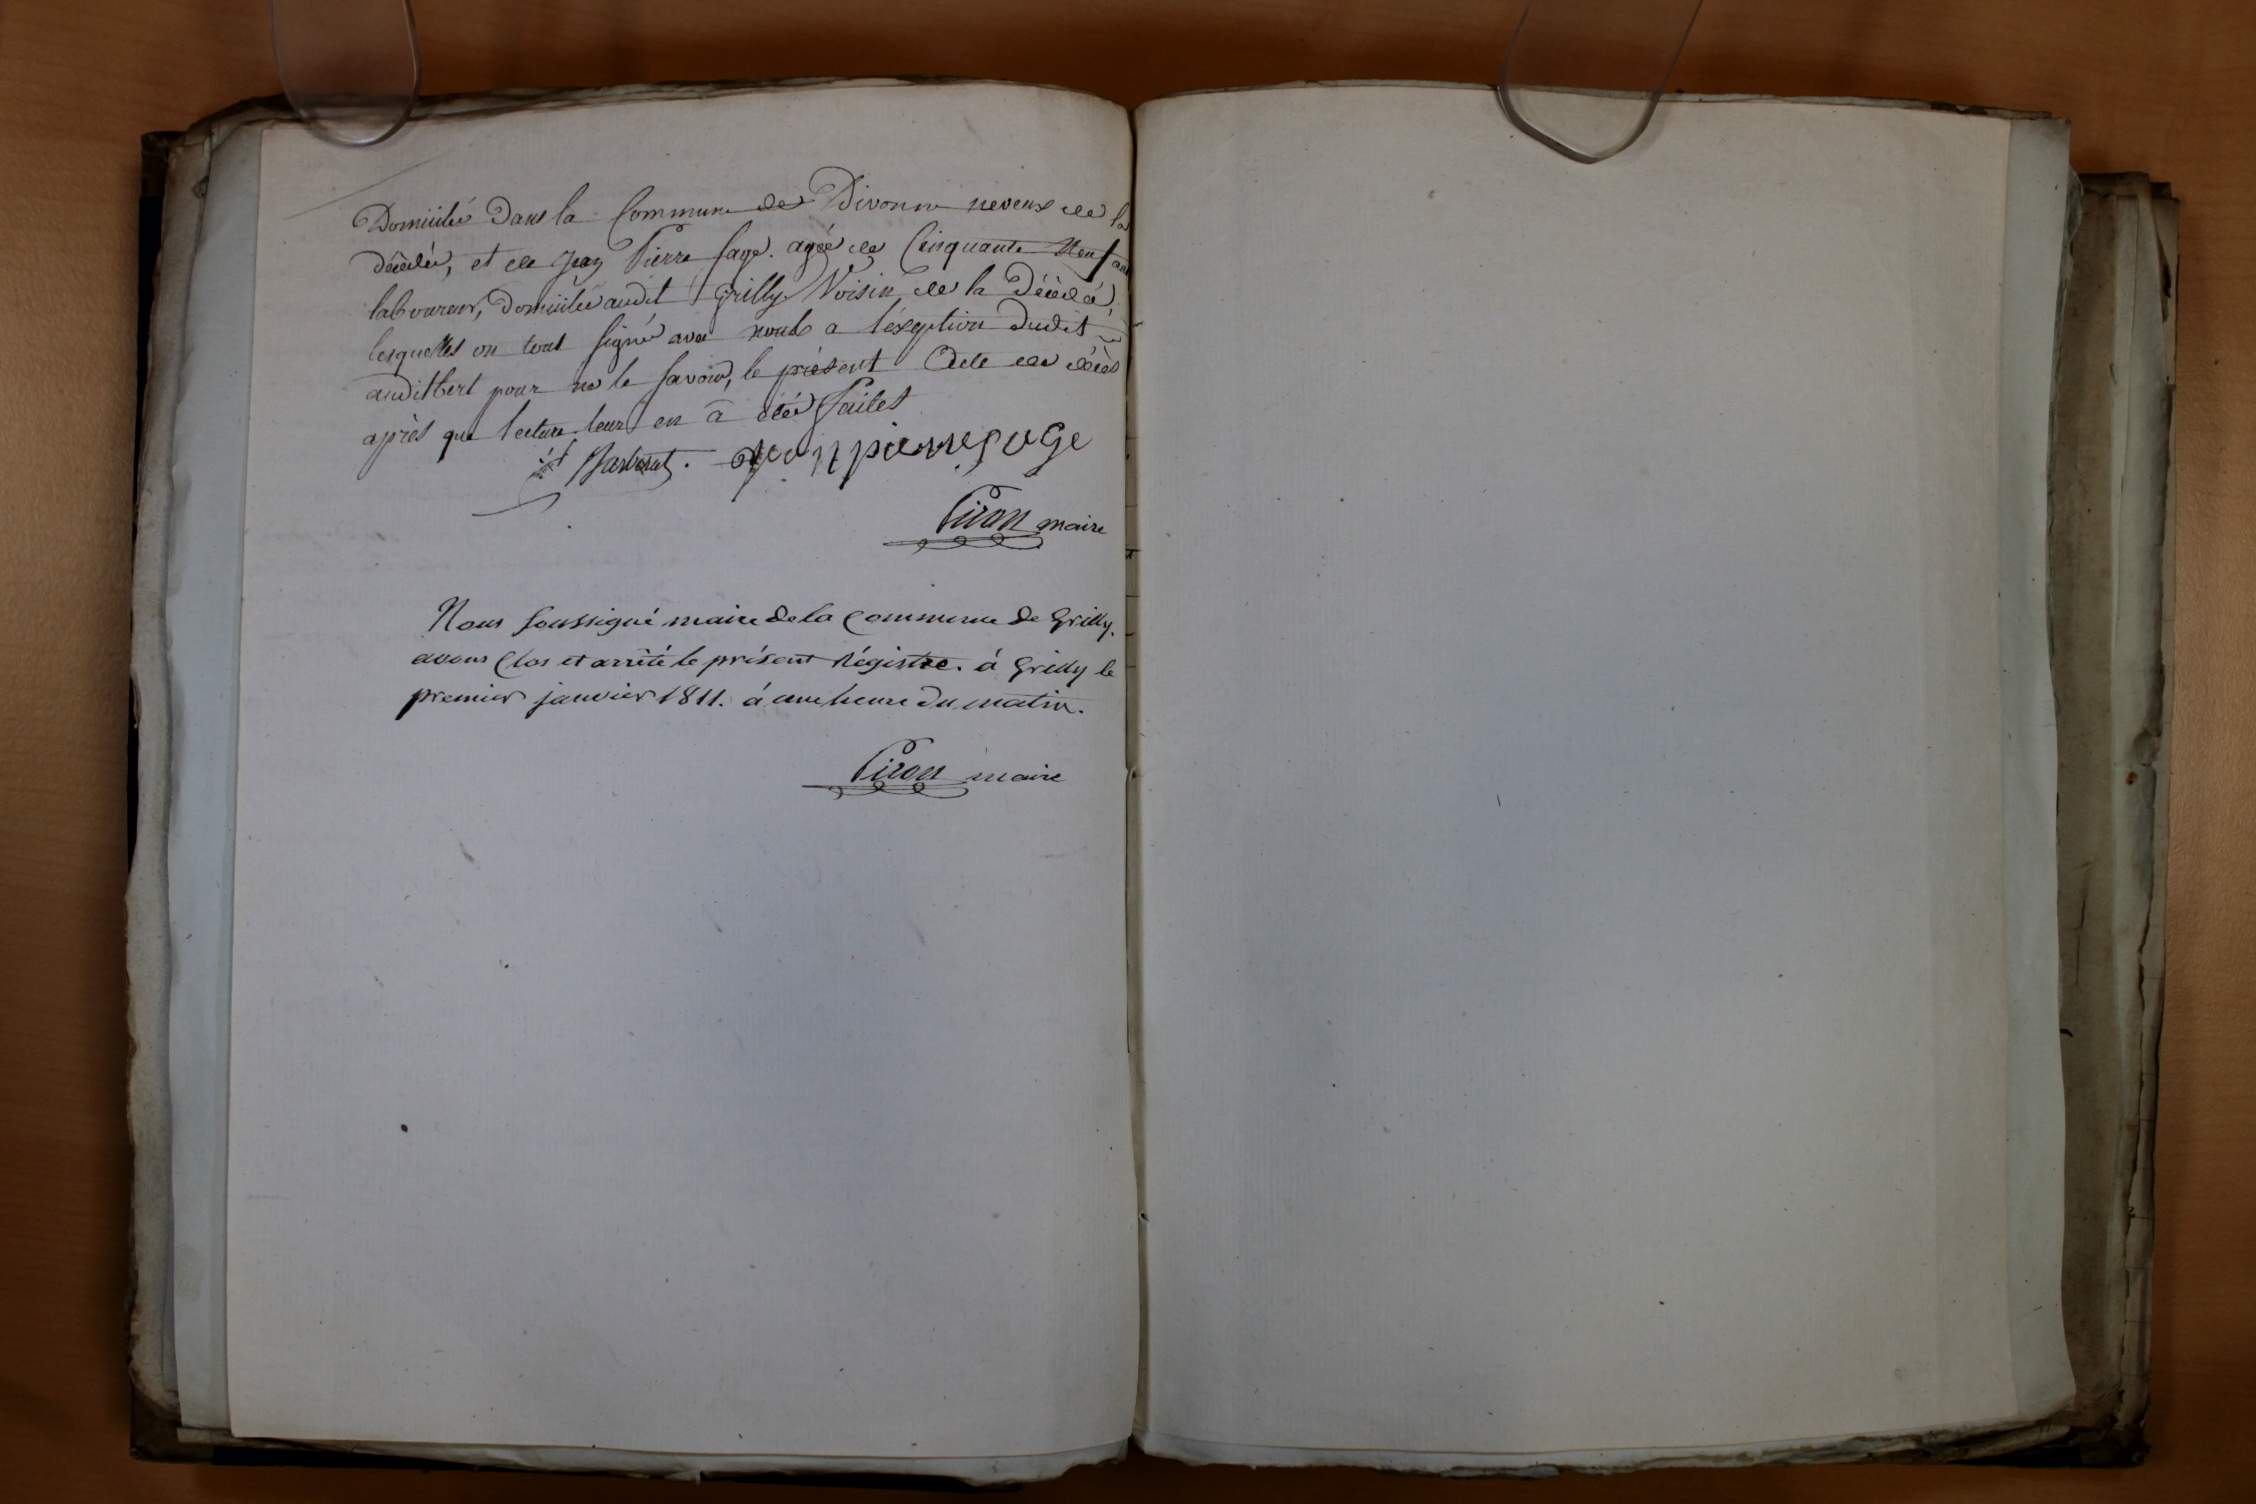 Domicilié Dans la Commune de Divonne neveux de la
décédée, et de Jean Pierre fage. agée de Cinquante Neuf ans
laboureur, Domicilié audit Grilly Voisin de la Décédé,
lesquelles on tout signé avec nous a l'éxeption dudit
auditbert pour ne le savoir, le présent Acte de décès
après que lecture leur en à été faites
Barberat. jean pierre fage
Piron maire
Nous soussigné maire de la Commune de Grilly.
avons Clos et arrêté le présent Régistre. á Grilly le
premier janvier 1811. á une heure du matin.
Piron maire